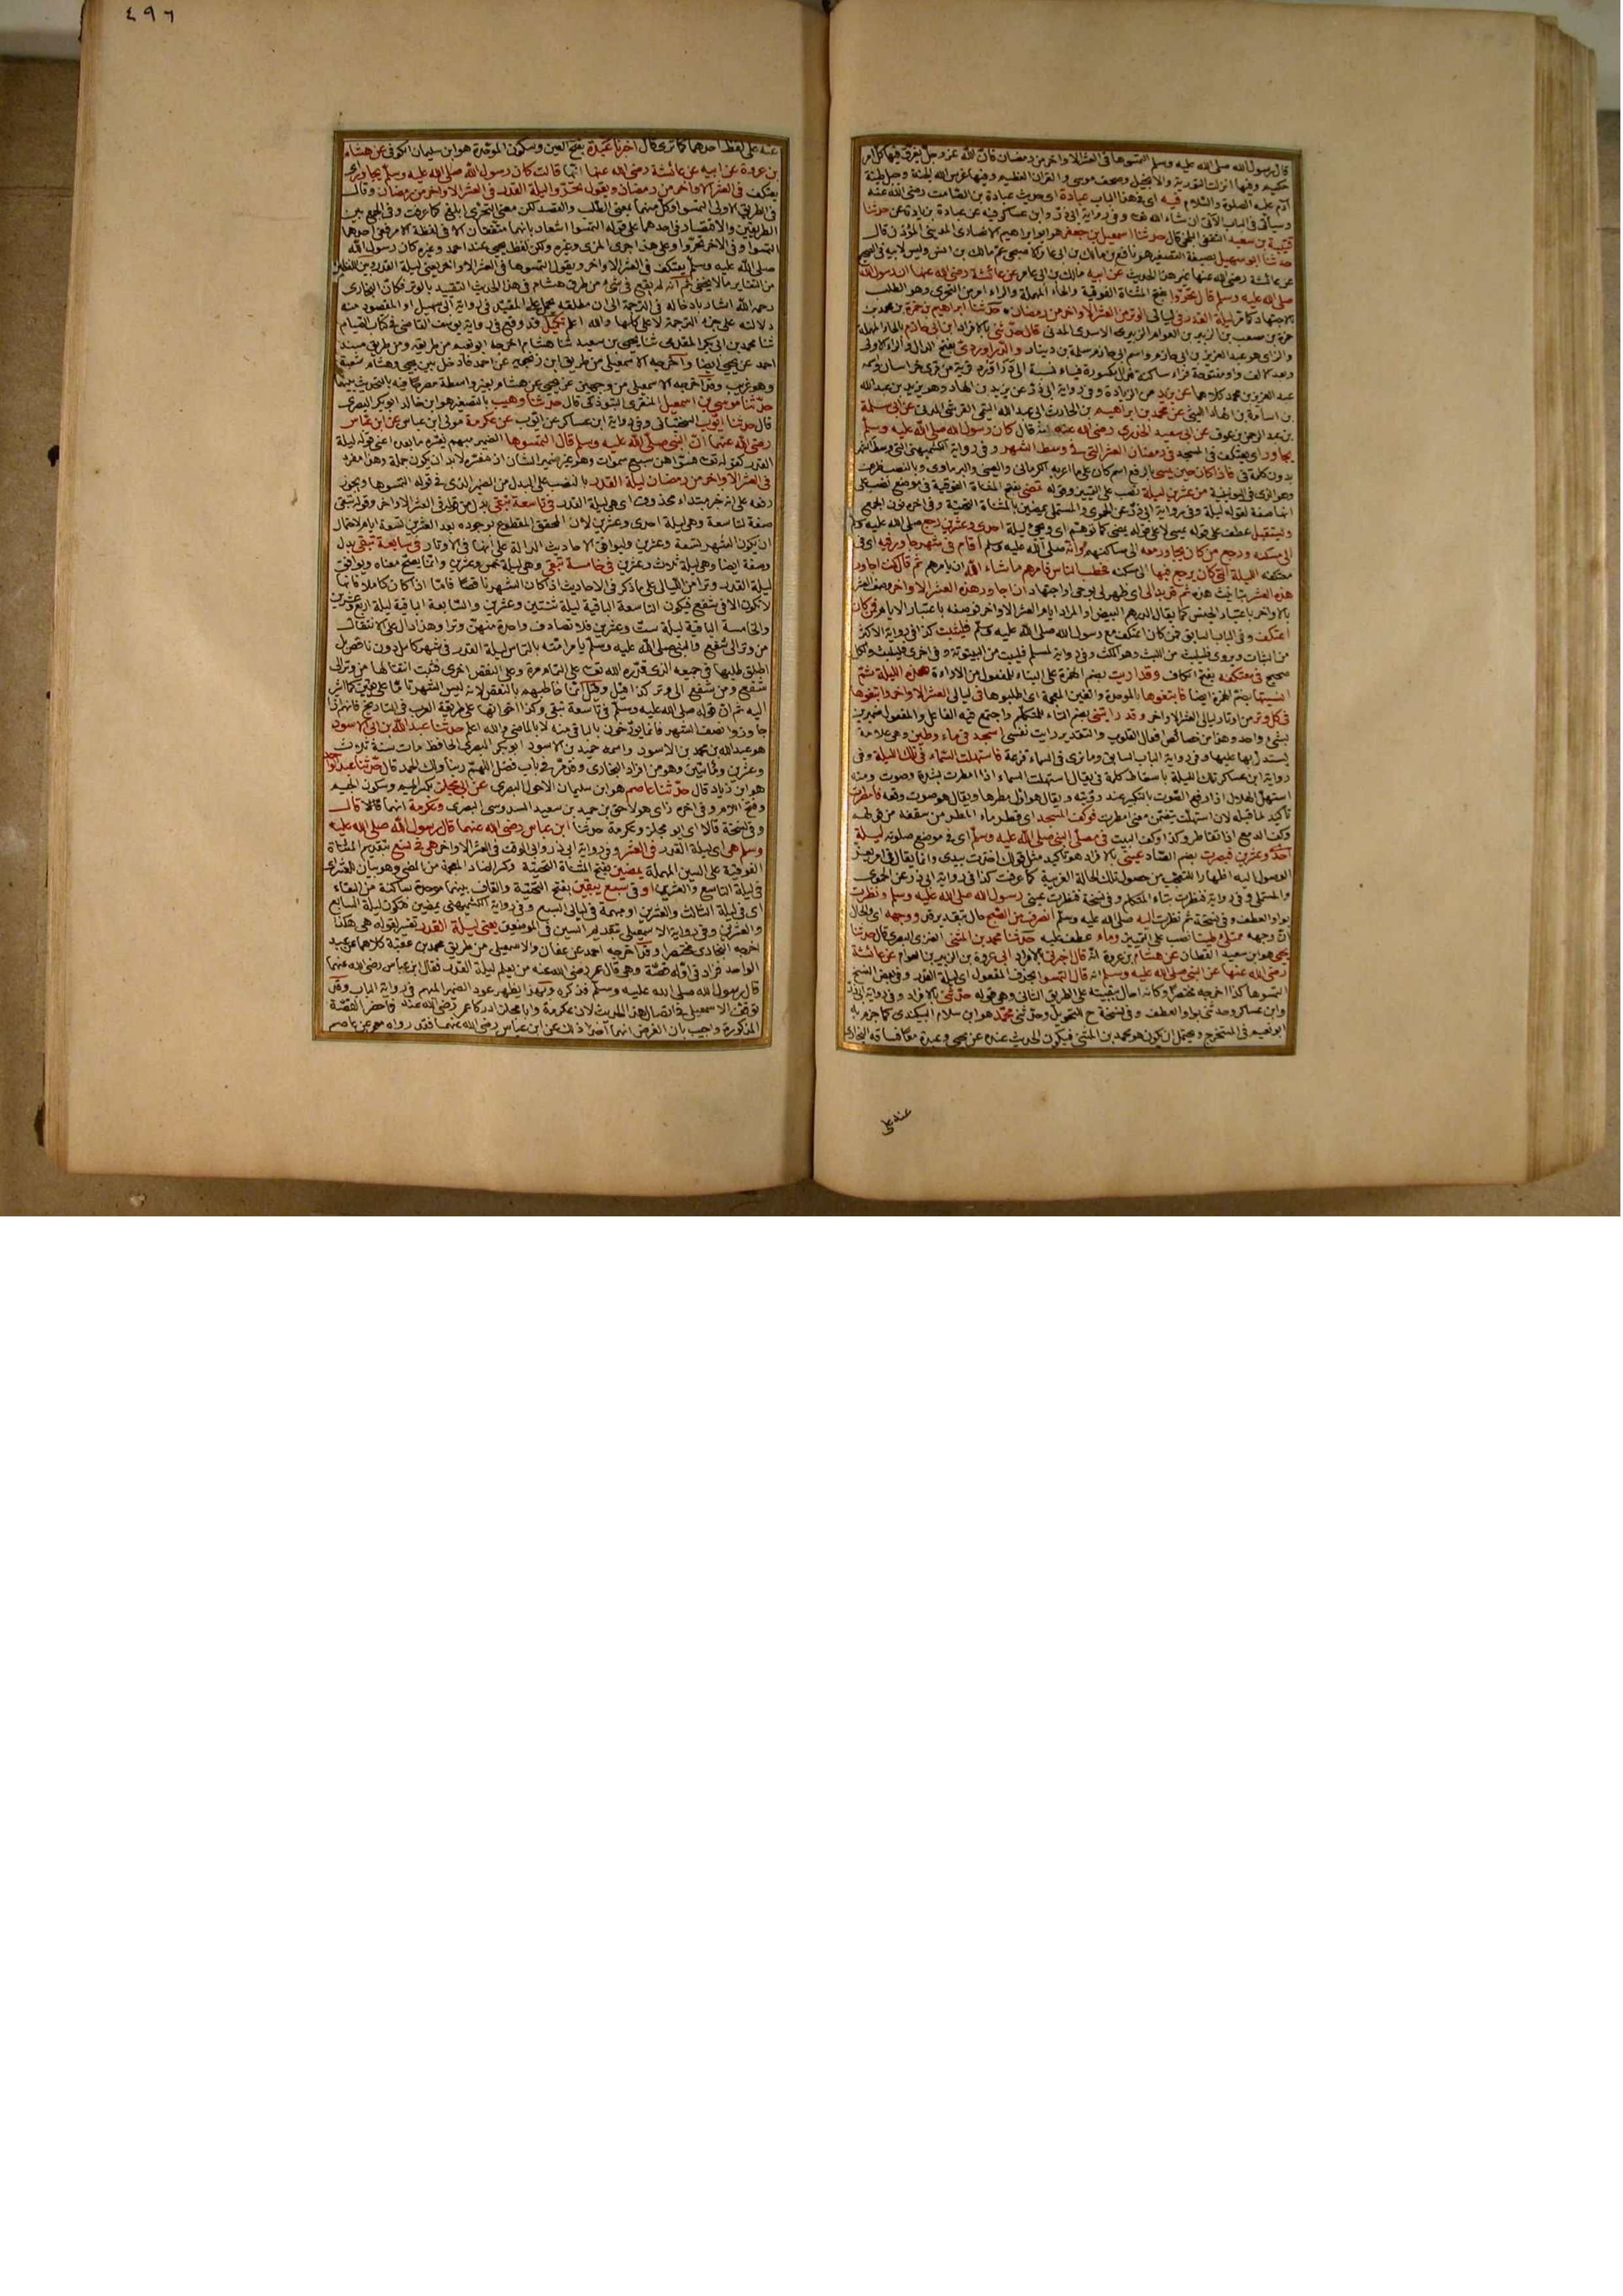 قال رسول الله صلى الله عليه وسلم التمسوها في العشر الاواخر من رمضان فان الله عز وجل يفرق فيها كل امر
حكيم وفيها انزلت التورية والانجيل وصحف موسى والقران العظيم وفيها غرس الله الجنة وجبل طينة
آدم عليه الصلوة والسلام فيه اى فى هذا الباب عبادة اى حديث عبادة بن الصامت رضى الله عنه
وسيأتى فى الباب الآتى ان شاء الله تعـ وفى رواية ابى ذر وابن عساكر فيه عن عبادة حدثنا
قتيبة بن سعيد الثقفى البلخى قال حدثنا اسمعيل بن جعفر هو ابو ابراهيم الانصارى المدينى المؤذن قال
حدثنا ابو سهيل بصيغة التصغير هو نافع بن مالك بن ابى عامر الاصبحى عم مالك بن انس وليس لابيه فى الصحيح
عن عائشة رضى الله عنها غير هذا الحديث عن ابيه مالك بن ابى عامر عن عائشة رضى الله عنها ان رسول الله
صلى الله عليه وسلم قال تحروا بفتح المثناة الفوقية والحاء المهملة والراء امر من التحرى وهو الطلب
بالاجتهاد كما مر ليلة القدر فى ليالى الوتر من العشر الاواخر من رمضان حدثنا ابراهيم بن حمزة بن محمد بن
حمزة بن مصعب بن الزبير بن العوام الزبيرى الاسدى المدنى قال حدثنى بالافراد ابن ابى حازم بالحاء المهملة
والزاى هو عبد العزيز بن ابى حازم واسم ابى حازم سلمة بن دينار والدراوردى بفتح الدال والراء الاولى
عبد العزيز بن محمد كلاهما عن يزيد من الزيادة وفى رواية ابى ذر عن يزيد بن الهاد وهو يزيد بن عبد الله
بن اسامة بن الهاد الليثى عن محمد بن ابراهيم بن الحارث ابى عبد الله التيمى القرشى المدنى عن ابى سلمة
بن عبد الرحمن بن عوف عن ابى سعيد الخدرى رضى الله عنه انه قال كان رسول الله صلى الله عليه وسلم
يجاور اى يعتكف فى المسجد فى رمضان العشر التى فى وسط الشهر وفى رواية الكشميهنى التى وسط الشهر
بدون كلمة فى فاذا كان حين يمسى بالرفع اسم كان
من عشرين ليلة نصب على التمييز وقوله تمضى بفتح المثناة الفوقية فى موضع نصب على
انها صفة لقوله ليلة وفى رواية ابى ذر عن الحموى والمستملى يمضين بالمثناة التحتية وفى اخره نون الجمع
ويستقبل عطف على قوله يمسى لا على قوله يمضى كما توهم اى ويجئ ليلة احدى وعشرين رجع صلى الله عليه وسلم
الى مسكنه ورجع من كان يجاور معه الى مساكنهم وانه صلى الله عليه وسلم اقام فى شهر جاور فيه اى فى
معتكفه الليلة التى كان يرجع فيها الى مسكنه فخطب الناس فامرهم ما شاء الله ان يامرهم ثم قال كنت اجاور
هذه العشر بتانيث هذه ثم قد بدا لى اى ظهر لى بوحى او اجتهاد ان اجاور هذه العشر الاواخر
فمن كان
اعتكف وفى الباب السابق فمن كان اعتكف مع رسول الله صلى الله عليه وسلم فليثبت كذا فى رواية الاكثر
من الثبات ويروى فليلبث من اللبث وهو المكث وفى رواية لمسلم فليبت من البيتوتة وفى اخرى فليلبث والكل
صحيح فى معتكفه بفتح الكاف وقد اريت بضم الهمزة على البناء للمفعول من الاراءة هذه الليلة ثم
انسيتها بضم الهمزة ايضا فابتغوها بالموحدة والغين المعجمة اى اطلبوها فى ليالى العشر الاواخر وابتغوها
فى كل وتر من اوتار ليالى العشر الاواخر وقد رايتنى بضم التاء للمتكلم واجتمع فيه الفاعل والمفعول ضميرين
بشئ واحد وهذا من خصائص افعال القلوب والتقدير رايت نفسى اسجد فى ماء وطين وهى علامة
يستدل بها عليها وفى رواية الباب السابق وما نرى فى السماء قزعة فاستهلت السماء فى تلك الليلة وفى
رواية ابن عساكر تلك الليلة باسقاط كلمة فى يقال استهلت السماء اذا امطرت بشدة وصوت ومنه
استهل الهلال اذا رفع الصوت بالتكبير عند رؤيته ويقال هو اول مطرها ويقال هو صوت وقعه فامطرت
تأكيد لما قبله لان استهلت يتضمن معنى امطرت فوكف المسجد اى قطر ماء المطر من سقفه من قولهم
وكف الدمع اذا تقاطر وكذا وكف البيت فى مصلى النبى صلى الله عليه وسلم اى فى موضع صلوته ليلة
احدى وعشرين فبصرت بضم الصاد عينى بالافراد هو تأكيد مثل قولك اخذت بيدى وانما يقال فى امر يعز
الوصول اليه اظهارا للتعجب من حصول تلك الحالة الغريبة كذا فى رواية ابى ذر عن الحموى
والمستملى وفى رواية فنظرت بتاء المتكلم وفى نسخة فبصرت عينى رسول الله صلى الله عليه وسلم ونظرت
بواو العطف وفى نسخة ثم نظرت اليه صلى الله عليه وسلم انصرف من الصبح حال بتقدير قد ووجهه اى والحال
ان وجهه ممتلئ طينا نصب على التمييز وماء عطف عليه حدثنا محمد بن المثنى العنزى البصرى قال حدثنا
يحيى هو ابن سعيد القطان عن هشام بن عروة انه قال اخبرنى بالافراد ابى عروة بن الزبير بن العوام عن عائشة
رضى الله عنها عن النبى صلى الله عليه وسلم انه قال التمسوا بحذف المفعول اى ليلة القدر وفى بعض النسخ
التمسوها كذا اخرجه مختصرا وكانه احال ببقيته على الطريق الثانى وهى قوله حدثنى بالافراد وفى رواية ابى ذر
وابن عساكر وحدثنى بواو العطف وفى نسخة ح للتحويل وحدثنى محمد هو ابن سلام البيكندى كما جزم به
ابو نعيم فى المستخرج ويحتمل ان يكون هو محمد بن المثنى فيكون الحديث عنده عن يحيى وعبدة معا فساقه البخارى
عنه على
٤٩٦
عنه على لفظ احدهما كما ترى قال اخبرنا عبدة بفتح العين وسكون الموحدة هو ابن سليمان الكوفى عن هشام
بن عروة عن ابيه عن عائشة رضى الله عنها انها قالت كان رسول الله صلى الله عليه وسلم يجاور اى
يعتكف فى العشر الاواخر من رمضان ويقول تحروا ليلة القدر فى العشر الاواخر من رمضان وقال
فى الطريق الاولى التمسوا وكل منهما بمعنى الطلب والقصد لكن معنى التحرى ابلغ كما عرفت وفى الجمع بين
الطريقين والاقتصاد فى احدهما على قوله التمسوا اشعار بانهما متفقان الا فى لفظة الامر ففى احدهما
التمسوا وفى الاخر تحروا وعلى هذا جرى المزى وغيره ولكن لفظ يحيى عند احمد وغيره كان رسول الله
صلى الله عليه وسلم يعتكف فى العشر الاواخر ويقول التمسوها فى العشر الاواخر يعنى ليلة القدر وبين اللفظين
من التغاير ما لا يخفى ثم انه لم يقع فى شئ من طرق هشام فى هذا الحديث التقييد بالوتر فكان البخارى
رحمه الله اشار بادخاله فى الترجمة الى ان مطلقه يحمل على المقيد فى رواية ابى سهيل او المقصود منه
دلالته على جزء الترجمة لا على كلها والله اعلم تكميل قد وقع فى رواية يوسف القاضى فى كتاب الصيام
ثنا محمد بن ابى بكر المقدمى ثنا يحيى بن سعيد ثنا هشام اخرجه ابو نعيم من طريقه ومن طريق مسند
احمد عن يحيى ايضا واخرجه الاسمعيلى من طريق ابن زنجويه عن احمد فادخل بين يحيى وهشام شعبة
وهو غريب وقد اخرجه الاسمعيلى من وجهين عن يحيى عن هشام بغير واسطة مصرحا فيه بالتحديث بينهما
حدثنا موسى بن اسمعيل المنقرى التبوذكى قال حدثنا وهيب بالتصغير هو ابن خالد ابو بكر البصرى
قال حدثنا ايوب السختيانى وفى رواية ابن عساكر عن ايوب عن عكرمة مولى ابن عباس عن ابن عباس
رضى الله عنهما ان النبى صلى الله عليه وسلم قال التمسوها الضمير مبهم يفسره ما بعده اعنى قوله ليلة
القدر كقوله تعـ فسواهن سبع سموات وهو غير ضمير الشان اذ مفسره لا بد ان يكون جملة وهذا مفرد
فى العشر الاواخر من رمضان ليلة القدر بالنصب على البدل من الضمير الذى فى قوله التمسوها ويجوز
رفعه على انه خبر مبتداء محذوف اى هى ليلة القدر فى تاسعة تبقى بدل من قوله فى العشر الاواخر وقوله تبقى
صفة لتاسعة وهى ليلة احدى وعشرين لان المحقق المقطوع بوجوده بعد العشرين تسعة ايام لاحتمال
ان يكون الشهر تسعة وعشرين وليوافق الاحاديث الدالة على انها فى الاوتار فى سابعة تبقى بدل
وصفة ايضا وهى ليلة ثلاث وعشرين فى خامسة تبقى وهى ليلة خمس وعشرين وانما يصح معناه ويوافق
ليلة القدر وترا من الليالى على ما ذكر فى الاحاديث اذا كان الشهر ناقصا فاما اذا كان كاملا فانها
لا تكون الا فى شفع فيكون التاسعة الباقية ليلة ثنتين وعشرين والسابعة الباقية ليلة اربع وعشرين
والخامسة الباقية ليلة ست وعشرين فلا تصادف واحدة منهن وترا وهذا دال على الانتقال
من وتر الى شفع والنبى صلى الله عليه وسلم يامر امته بالتماس ليلة القدر فى شهر كامل دون ناقص بل
اطلق طلبها فى جميعه الذى قدره الله تعـ على التمام مرة وعلى النقص اخرى فثبت انتقالها من وتر الى
شفع ومن شفع الى وتر كذا قيل وقيل انما خاطبهم بالنقص لانه ليس الشهر تاما على
اليه ثم ان قوله صلى الله عليه وسلم فى تاسعة تبقى وكذا اخواتها على طريقة العرب فى التاريخ فانهم اذا
جاوزوا نصف الشهر فانما يؤرخون بالباقى منه لا بالماضى والله اعلم حدثنا عبد الله بن ابى الاسود
هو عبد الله بن محمد بن الاسود واسمه حميد بن الاسود ابو بكر البصرى الحافظ مات سنة ثلاث
وعشرين ومائتين وهو من افراد البخارى وقد مر فى باب فضل اللهم ربنا ولك الحمد قال حدثنا عبد الواحد
هو ابن زياد قال حدثنا عاصم هو ابن سليمان الاحول البصرى عن ابى مجلز بكسر الميم وسكون الجيم
وفتح اللام وفى اخره زاى هو لاحق بن حميد بن سعيد السدوسى البصرى وعكرمة انهما قالا قال
وفى نسخة قالا اى ابو مجلز وعكرمة حدثنا ابن عباس رضى الله عنهما قال رسول الله صلى الله عليه
وسلم هى اى ليلة القدر فى العشر وفى رواية ابى ذر وابى الوقت فى العشر الاواخر هى فى تسع بتقديم المثناة
الفوقية على السين المهملة يمضين بفتح المثناة التحتية وكسر الضاد المعجمة من المضى وهو بيان للعشر اى
فى ليلة التاسع والعشرين او فى سبع يبقين بفتح التحتية والقاف بينهما موحدة ساكنة من البقاء
اى فى ليلة الثالث والعشرين او مبهمة فى ليالى السبع وفى رواية الكشميهنى يمضين فتكون ليلة السابع
والعشرين وفى رواية الاسمعيلى بتقديم السين فى الموضعين يعنى ليلة القدر تفسير لقوله هى هكذا
اخرجه البخارى مختصرا وقد اخرجه احمد عن عفان والاسمعيلى من طريق محمد بن عقبة كلاهما عن عبد
الواحد فزاد فى اوله قصة وهى قال عمر رضى الله عنه من يعلم ليلة القدر فقال ابن عباس رضى الله عنهما
قال رسول الله صلى الله عليه وسلم فذكره وبهذا يظهر عود الضمير المبهم فى رواية الباب وقد
توقف الاسمعيلى فى اتصال هذا الحديث لان عكرمة وابا مجلز ادركا عمر رضى الله عنه فما حضر القصة
المذكورة واجيب بان الغرض انهما اخذا ذلك عن ابن عباس رضى الله عنهما فقد رواه معمر عن عاصم